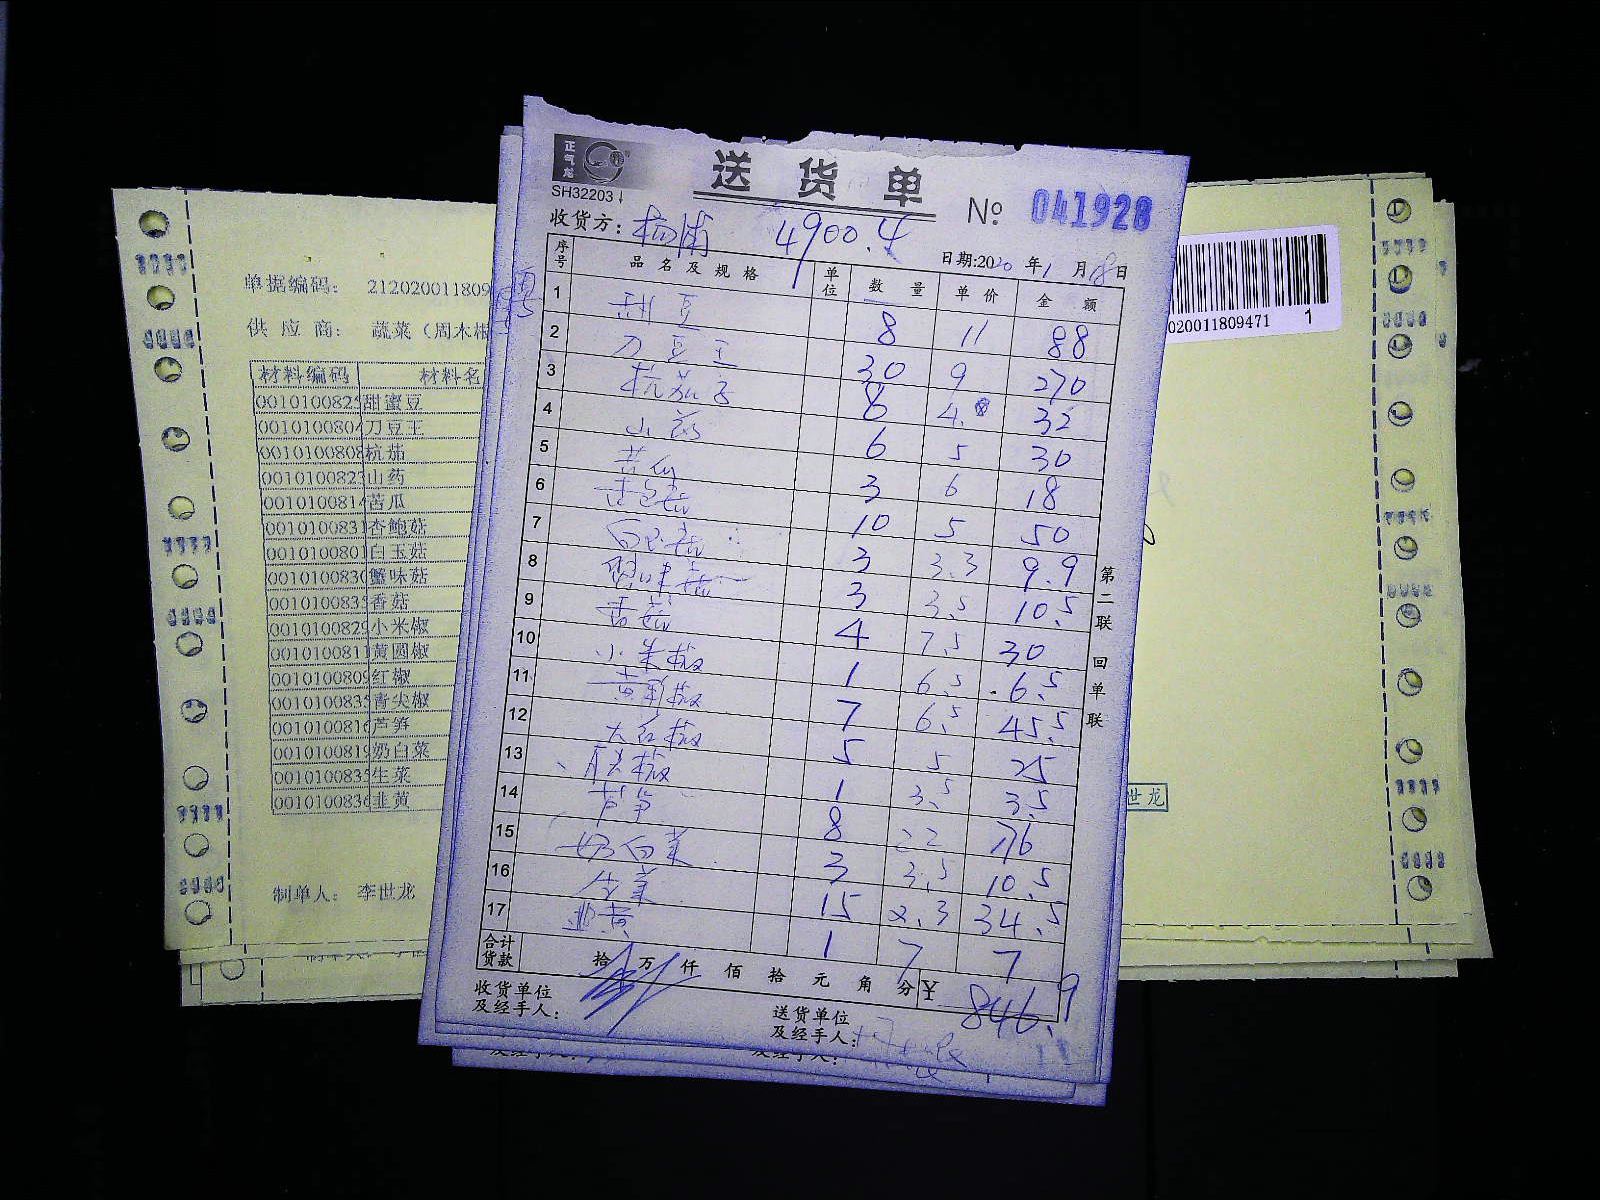 正气龙
SH32203
送货单
№ 041928
收货方: 杨浦 4900.4
日期:2020年1月18日
序号 品名及规格 单位 数量 单价 金额
1 甜豆 8 11 88
2 刀豆王 30 9 270
3 杭茄子 8 4. 32
4 山药 6 5 30
5 苦瓜 3 6 18
6 杏包菇 10 5 50
7 白玉菇 3 3.3 9.9
8 蟹味菇 3 3.5 10.5
9 香菇 4 7.5 30
10 小米椒 1 6.5 6.5
11 黄彩椒 7 6.5 45.5
12 大红椒 5 5 25
13 尖椒 1 3.5 3.5
14 芦笋 8 22 176
15 奶白菜 3 3.5 10.5
16 生菜 15 2.3 34.5
17 韭黄 1 7 7
合计货款 拾 万 仟 佰 拾 元 角 分 ¥ 846.9
收货单位及经手人:
送货单位及经手人:
第二联 回单联
单据编码: 212020011809
供应商: 蔬菜(周木根
材料编码 材料名
001010082 甜蜜豆
001010080 刀豆王
0010100808 杭茄
001010082 山药
001010081 苦瓜
001010083 杏鲍菇
001010080 白玉菇
001010083 蟹味菇
001010083 香菇
001010082 小米椒
001010081 黄圆椒
001010080 红椒
001010083 青尖椒
001010081 芦笋
001010081 奶白菜
001010083 生菜
001010083 韭黄
制单人: 李世龙
020011809471 1
世龙
及经手人:
及经手人: